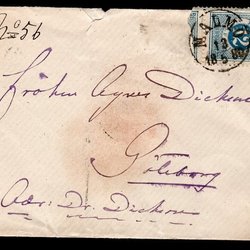 No 56
MALMÖ
13
18
Fröken Agnes Dickson
Göteborg
Adr: Dr. Dickson